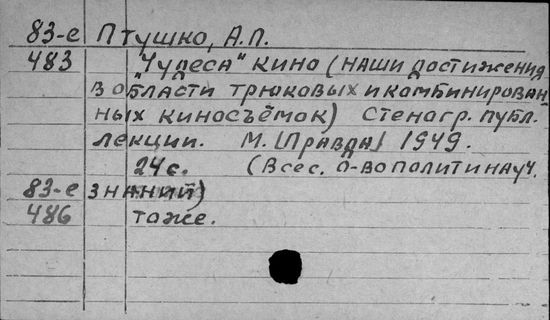 83-е Птушко, А.П.
483 "Чудеса" кино (наши достижения
в области трюковых и комбинирован-
ных киносъёмок) Стеногр. публ.
лекции. М. [Правда] 1949.
24с. (Всес. о-во полит и науч.
83-е знаний)
486 тоже.